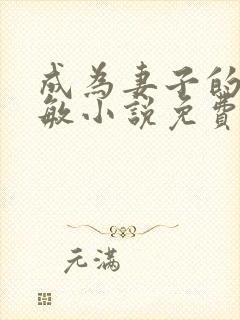 成為妻子的
敏小說免費
元滿